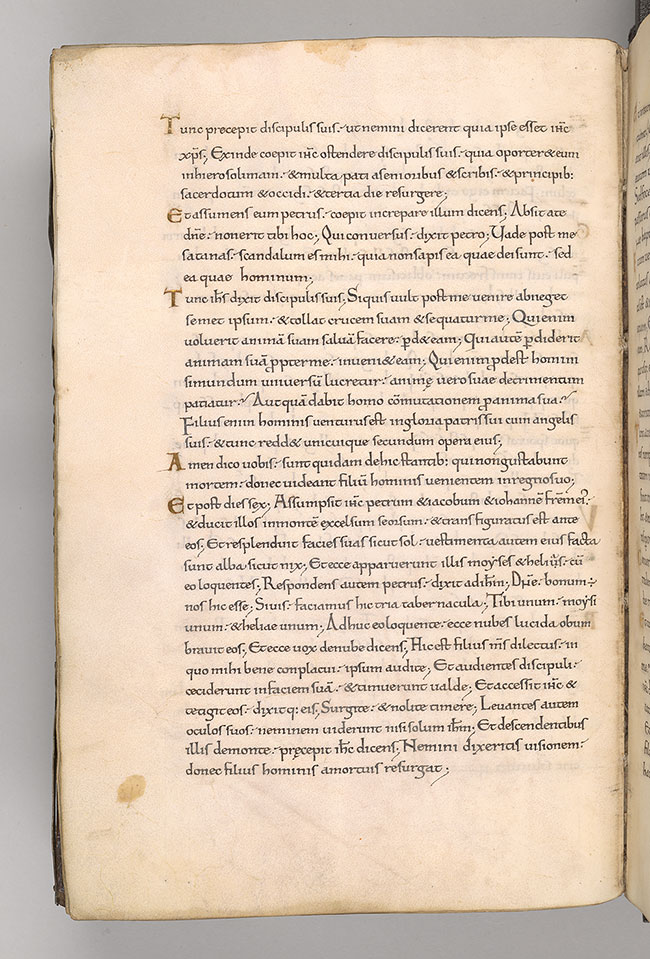 Tunc precepit discipulis suis· ut nemini dicerent quia ipse esset ihc̄
xp̄s; Exinde coepit ihc̄ ostendere discipulis suis· quia oporter& eum
inhierosolimam· & multa pati asenioribus & scribis· & principib:
sacerdotum & occidi· & tertia die resurgere;
Et assumens eum petrus· coepit increpare illum dicens; Absit ate
dn̄e· nonerit tibi hoc; Qui conversus· dixit petro; Vade post me
satanas· scandalum es mihi· quia nonsapis ea quae dei sunt· sed
ea quae hominum;
Tunc ih̄s dixit discipulis suis; Siquis vult post me venire abneget
semet ipsum· & tollat crucem suam & sequatur me; Qui enim
voluerit animā suam salvā facere· p̱d& eam; Qui autē p̱diderit
animam suā propter me· inveni& eam; Quid enim prodest homini
si mundum universū lucretur· animę vero suae detrimentum
patiatur· Aut quā dabit homo cōmutationem pro anima sua·
Filius enim hominis venturus est ingloria patris sui cum angelis
suis· & tunc redd& unicuique secundum opera eius;
Amen dico vobis· sunt quidam dehic stantib: qui nongustabunt
mortem· donec videant filiū hominis venientem inregno suo;
Et post dies sex; Assumpsit ihc̄ petrum & iacobum & iohannē frēm ei·
& ducit illos inmontē excelsum seorsum· & transfiguratus est ante
eos; Et resplenduit facies suas sicut sol· vestimenta autem eius facta
sunt alba sicut nix; Et ecce apparuerunt illis moyses & helius· cū
eo loquentes; Respondens autem petrus· dixit ad ihm̄; Dn̄e· bonum ÷
nos hic esse; Si vis· faciamus hic tria tabernacula; Tibi unum· moysi
unum· & heliae unum; Adhuc eo loquente· ecce nubes lucida obum
bravit eos; Et ecce vox denube dicens; Hic est filius m̄s dilectus· in
quo mihi bene conplacui· ipsum audite; Et audientes discipuli·
ceciderunt infaciem suā· & timuerunt valde; Et accessit ihc̄ &
tetigit eos· dixitq: eis; Surgite· & nolite timere; Levantes autem
oculos suos· neminem viderunt nisi solum ihm̄; Et descendentibus
illis demonte· pręcepit ihc̄ dicens; Nemini dixeritis visionem·
donec filius hominis amortuis resurgat;